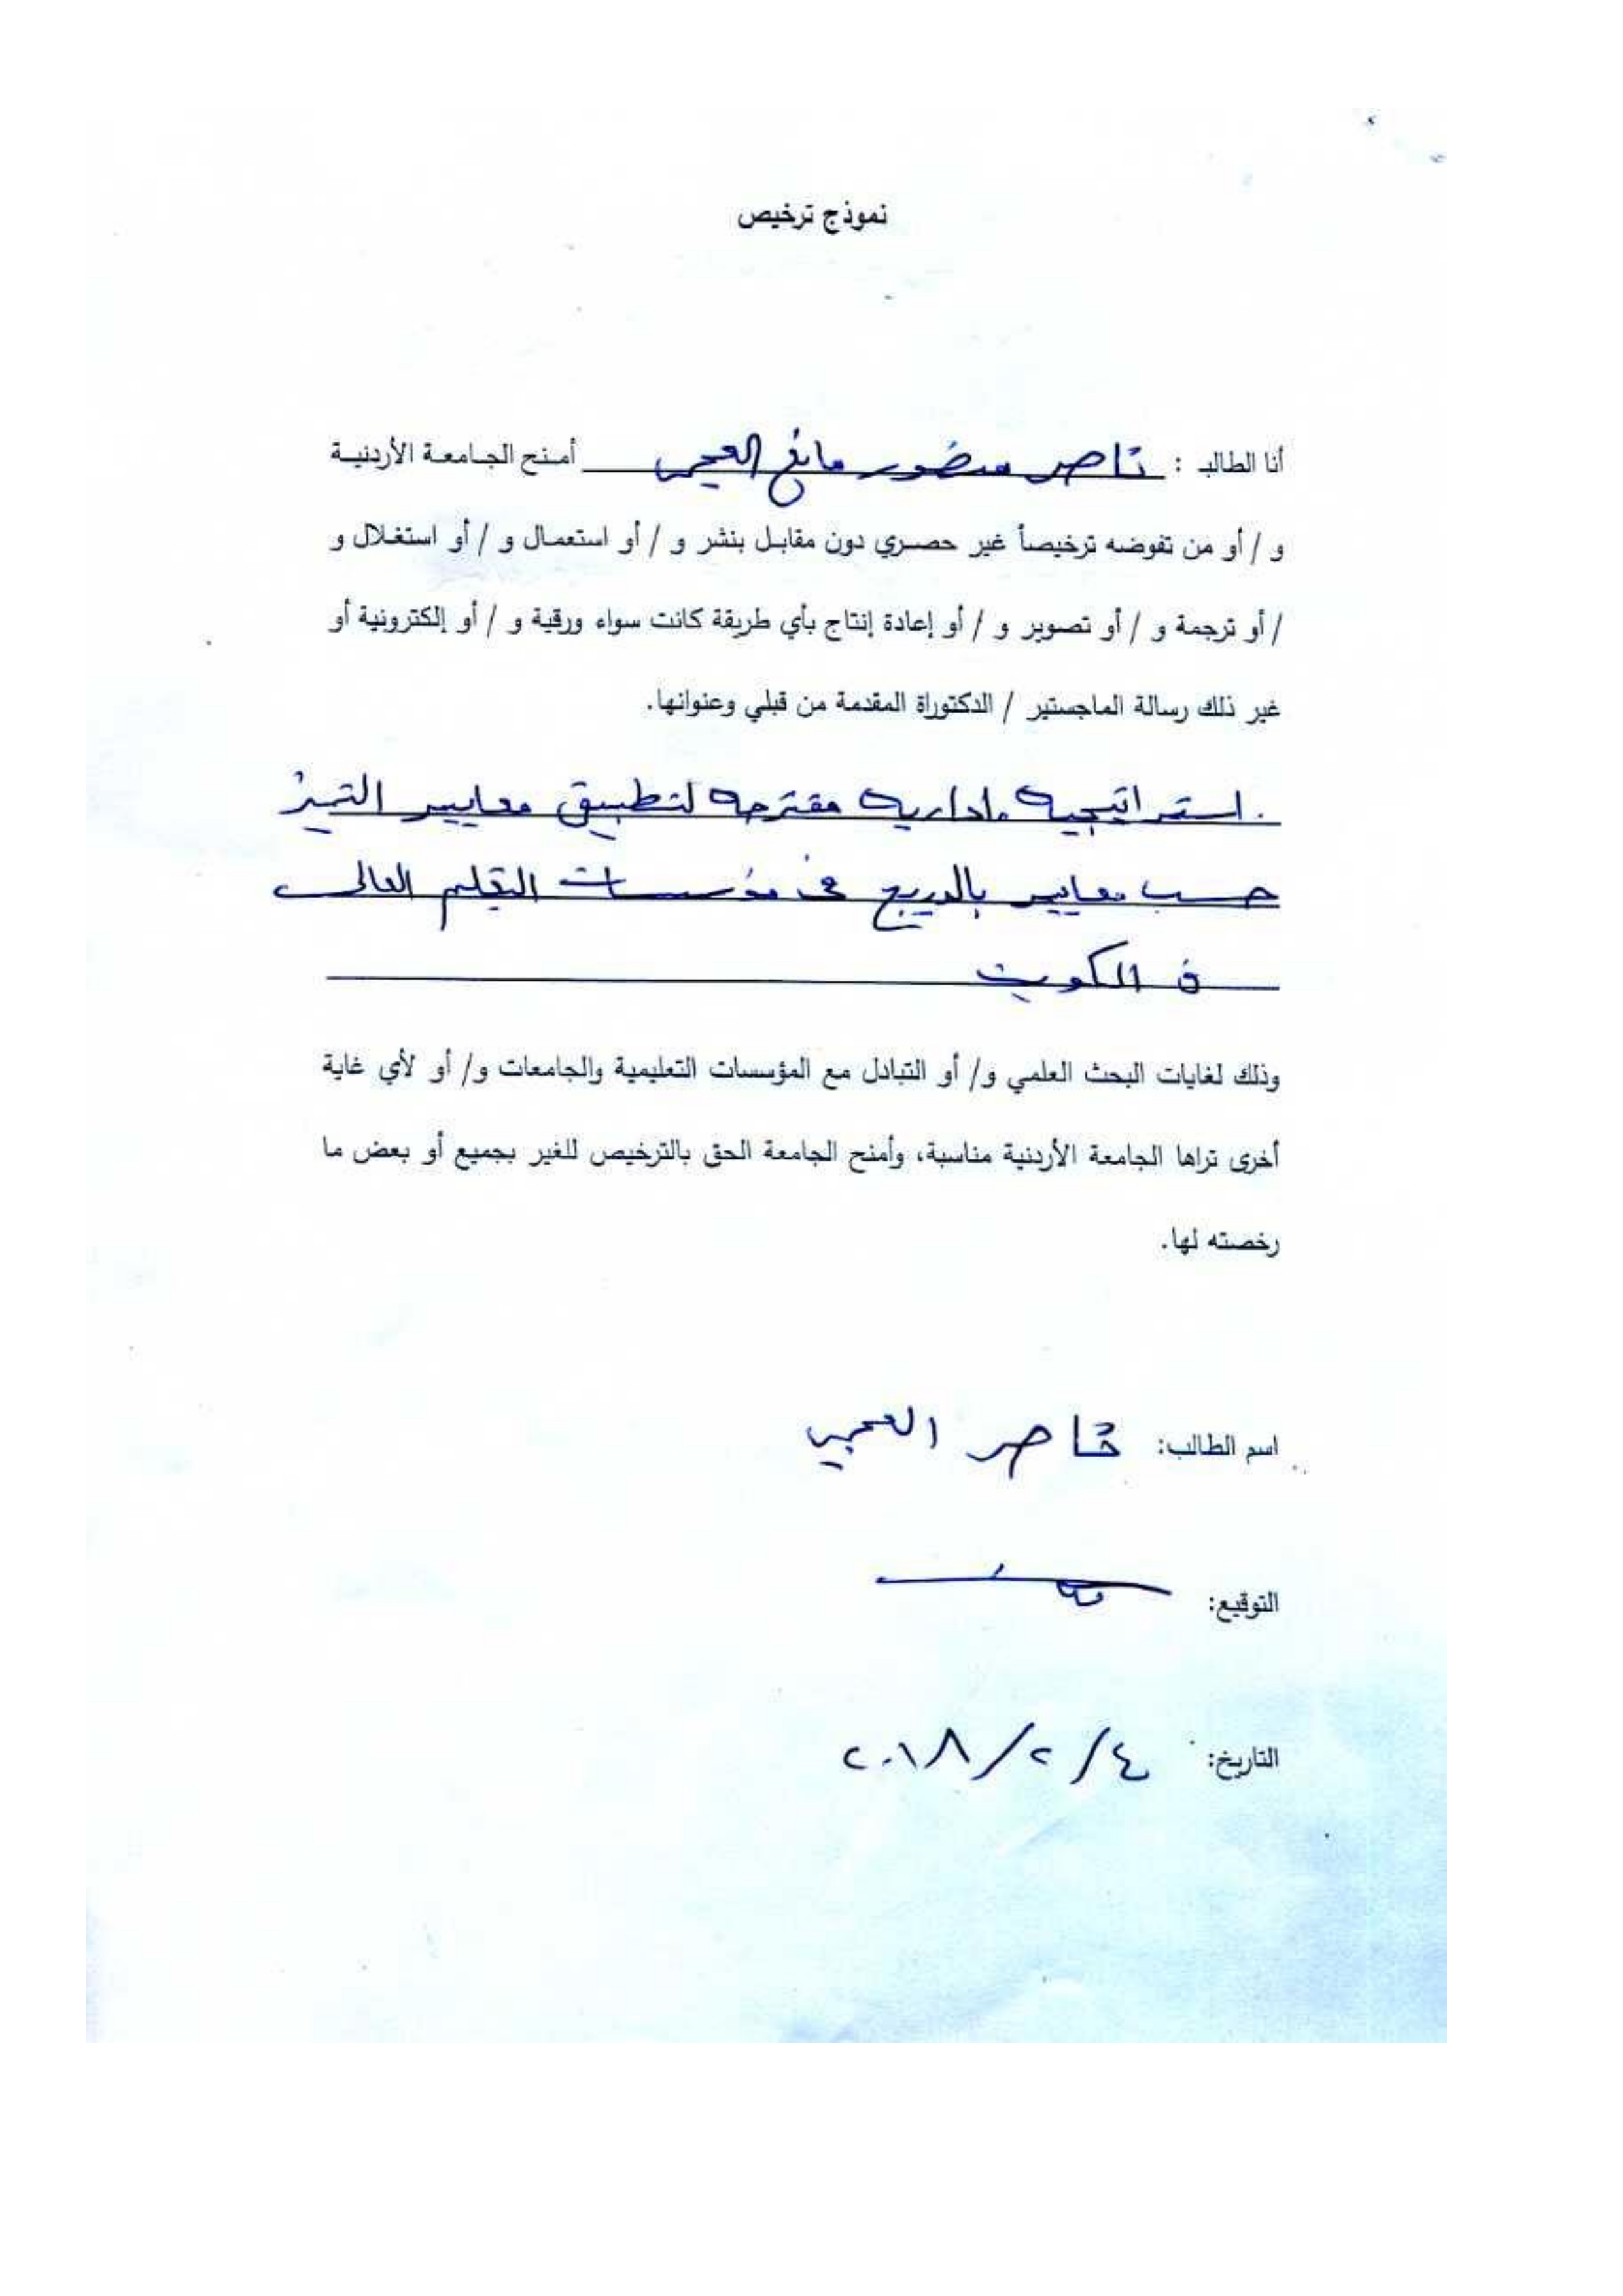 نموذج ترخيص
أنا الطالب : ناصر منصور مانع العجمي أمنح الجامعة الأردنية
و / أو من تفوضه ترخيصاً غير حصري دون مقابل بنشر و / أو استعمال و / أو استغلال و
/ أو ترجمة و / أو تصوير و / أو إعادة إنتاج بأي طريقة كانت سواء ورقية و / أو إلكترونية أو
غير ذلك رسالة الماجستير / الدكتوراة المقدمة من قبلي وعنوانها.
استراتيجيه اداريه مقترحه لتطبيق معايير التميز
حسب معايير بالدريج في مؤسسات التعليم العالي
في الكويت
وذلك لغايات البحث العلمي و/ أو التبادل مع المؤسسات التعليمية والجامعات و/ أو لأي غاية
أخرى تراها الجامعة الأردنية مناسبة، وأمنح الجامعة الحق بالترخيص للغير بجميع أو بعض ما
رخصته لها.
اسم الطالب: ناصر العجمي
التوقيع:
التاريخ: ٤/ ٢/ ٢٠١٨